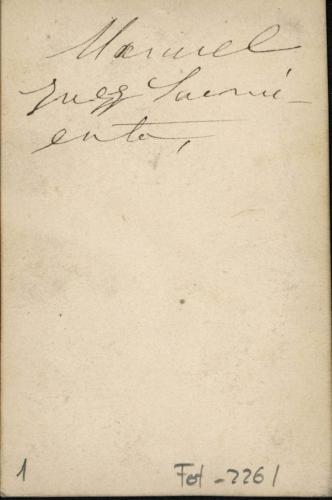 Manuel
Yñez Sarmi-
ento,
1
Fot-2261